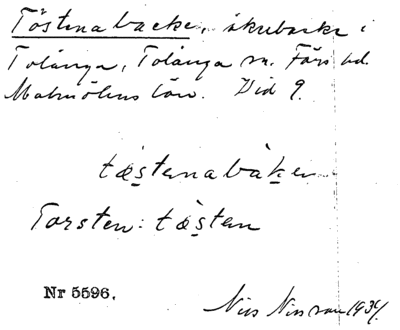 Töstenabacke, åkerbacke i
Tolånga, Tolånga sn. Färs hd.
Malmöhus län. Vid 9.
tæstenabàken
Torsten: tæ̀sten
Nr 5596.
Nils Nilsson 1934.